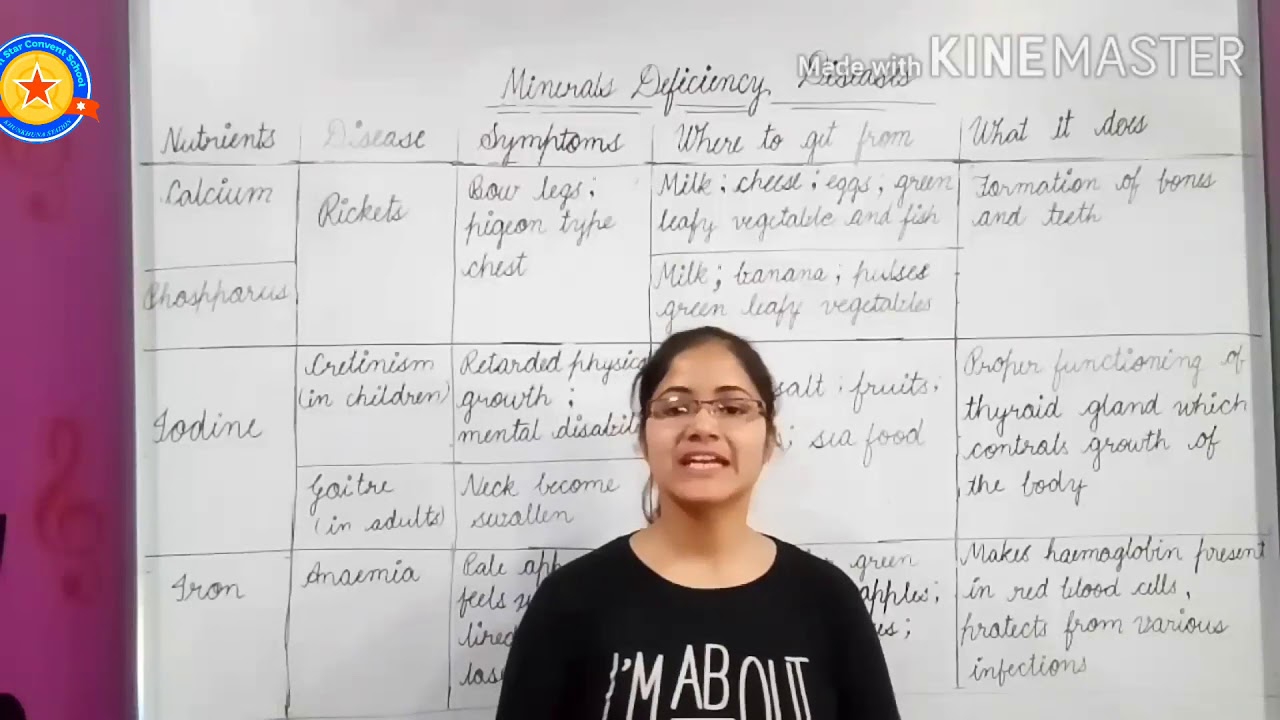 Star Convent School
KHUNKHUNA STATION
Made with KINEMASTER
Minerals Deficiency Diseases
Nutrients Disease Symptoms Where to get from What it does
Calcium
Rickets
Bow legs;
pigeon type
chest
Milk; cheese; eggs; green
leafy vegetable and fish
Formation of bones
and teeth
Phospharus
Milk; banana; pulses
green leafy vegetables
Iodine
Cretinism
(in children)
Retarded physic
growth;
mental
salt; fruits;
; sea food
Proper functioning of
thyroid gland which
controls growth of
the body
Goitre
(in adults)
Neck become
swollen
Iron
Anaemia
Pale
feels
green
apples;
Makes haemoglobin present
in red blood cells,
protects from various
infections
I'M ABOUT